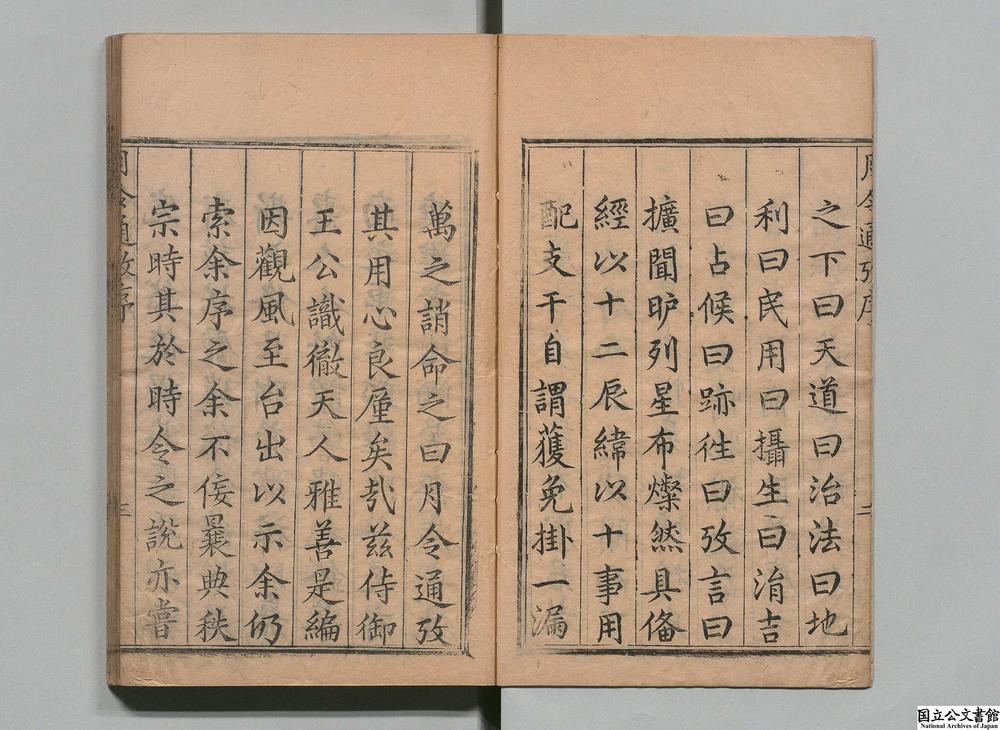 之下曰天道曰治法曰地
利曰民用曰攝生曰涓吉
曰占候曰跡徃曰攷言曰
擴聞昈列星布燦然具俻
經以十二辰緯以十事用
配支干自謂獲免掛一漏
萬之誚命之曰月令通攷
其用心良厪矣㢤兹侍御
王公識徹天人雅善是編
因觀風至台出以示余仍
索余序之余不佞曩典秩
宗時其於時令之說亦嘗
月令通攷序
二
月令通攷序
三
国立公文書館
National Archives of Japan